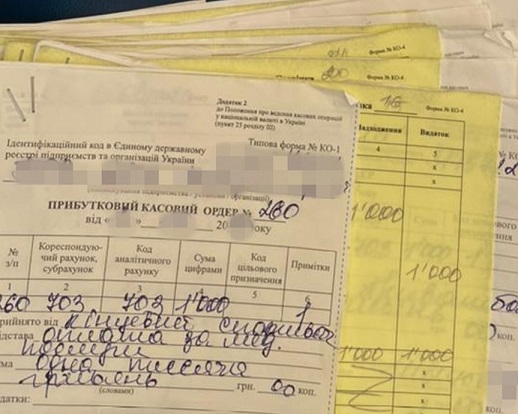 Форма № КО-4
20
Форма № КО-4
Додаток 2
до Положення про ведення касових операцій
у національній валюті в Україні
(пункт 25 розділу III)
Типова форма № КО-1
Ідентифікаційний код в Єдиному державному
реєстрі підприємств та організацій України
ПРИБУТКОВИЙ КАСОВИЙ ОРДЕР № 260
від « » 20 оку
№ з/п
Кореспондую-
чий рахунок,
субрахунок
Код
аналітичного
рахунку
Сума
цифрами
Код цільового
призначення
Примітки
1 2 3 4 5 6
260 703 703 1'000 1
рийнято від кінцевий споживач
дстава оплата за мед.
послуги
ма одна тисяча
гривень грн. 00 коп.
(словами)
датки:
16 Форма № КО-4
Видаток
4 5
х
х
1'000
1'000
1'000 1'000
х
х
х